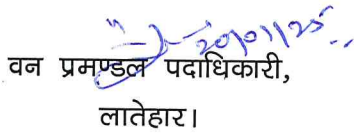 20/01/25
वन प्रमण्डल पदाधिकारी,
लातेहार।